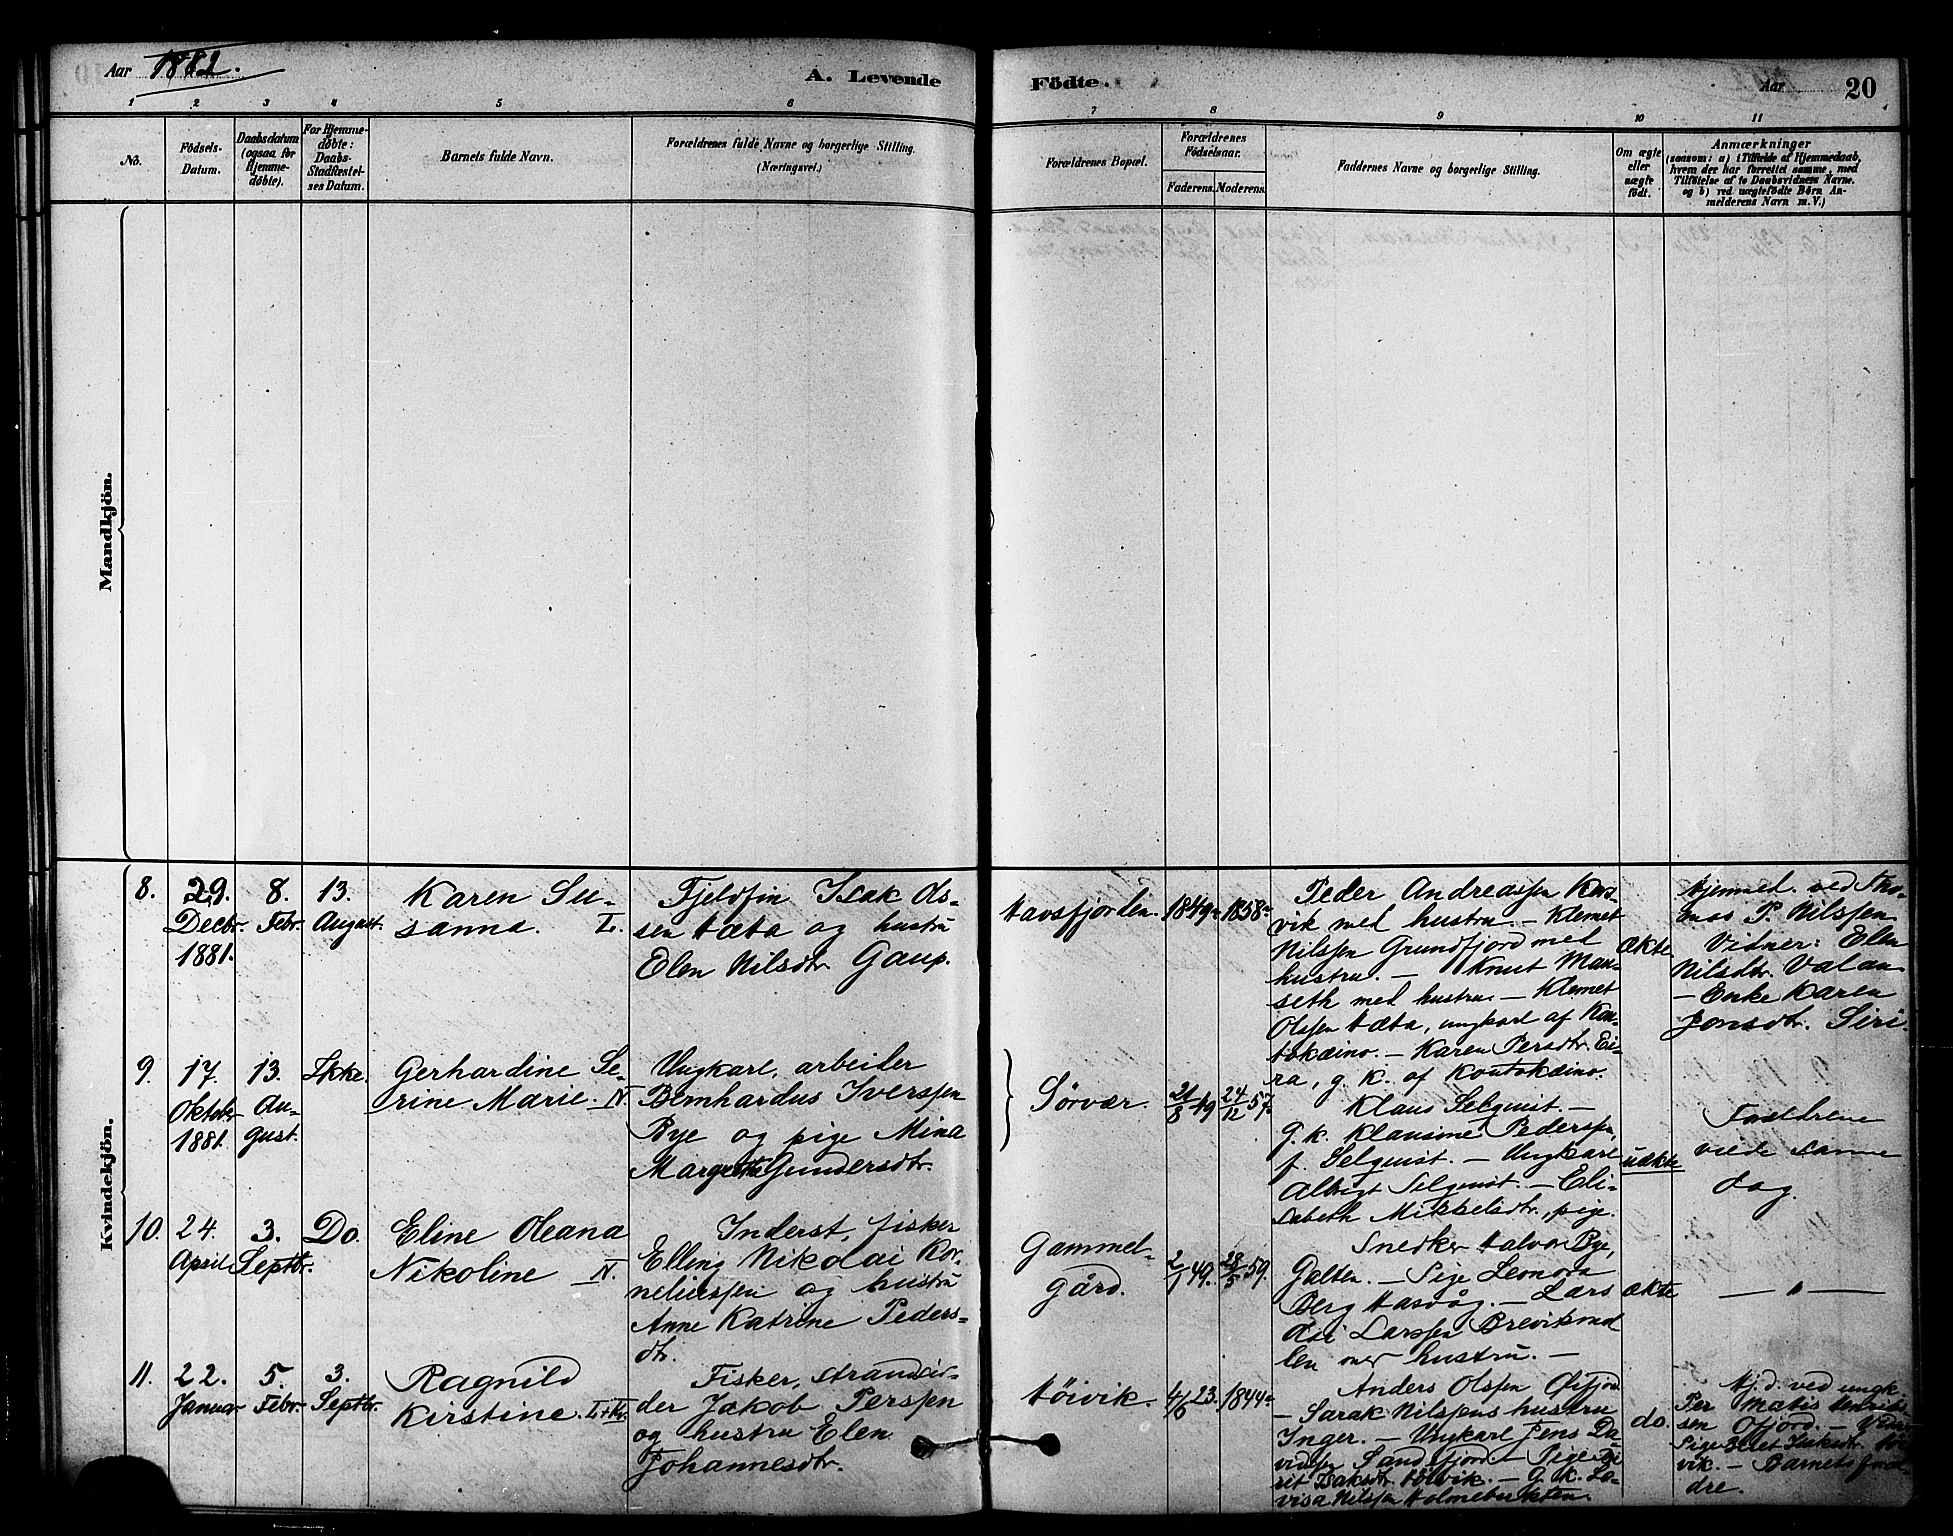 Aar 1882.
A. Levende
Födte.
Aar
20
1 2 3 4 5 6 7 8 9 10 11
No.
Födsels-
Datum.
Daabsdatum
(ogsaa for
Hjemme-
döbte).
For Hjemme-
döbte:
Daabs-
Stadfæstel-
ses Datum.
Barnets fulde Navn.
Forældrenes fulde Navne og borgerlige Stilling.
(Næringsvei.)
Forældrenes Bopæl.
Forældrenes
Födselsaar.
Faderens. Moderens.
Faddernes Navne og borgerlige Stilling.
Om ægte
eller
uægte
födt.
Anmærkninger
(saasom: a) i Tilfælde af Hjemmedaab,
hvem der har forrettet samme, med
Tilföielse af to Daabsvidners Navne.
og b) ved uægtefödte Börn An-
melderens Navn m. V.)
Mandkjön.
Kvindekjön.
8.
29.
Decbr.
1881.
8.
Febr.
13.
August.
Karen Su-
sanna. L.
Fjeldfin Isak As-
sen Hæta og hustru
Elen Nilsdtr. Gaup.
Havsfjorden.
1849
1858
Peder Andreassen
vik med hustru. – Klemet
Nilssen Grundfjord med
hustru. – Knut Mau-
seth med hustru. – Klemet
Olssen Hæta, ungkarl af Kau-
tokæino. – Karen Persdtr. Ei-
ra, g. k. af Koutokæino.
ækte
Hjemmed. ved Tho-
mas P. Nilssen
Vidner: Elen
Nilsdtr. Valan
– Enke Karen
Jonsdtr. Siri.
9.
17.
Oktobr
1881.
13.
Au-
gust.
Ikke.
Gerhardine Se-
rine Marie. N.
Ungkarl, arbeider
Bernhardus Iverssen
Bye og pige Mina
Margrethe Gundersdtr.
Sörvær.
21/8 49
24/12 57.
Klaus Selquist. –
g. k. Klausine Pederssen,
f. Selquist. – Ungkarl
Albrigt Selquist. – Eli-
sabeth Mikkelsdtr., pige.
uækte
Forældrene
viede samme
dag.
10.
24.
April
3.
Septbr.
Do.
Eline Oleana
Nikoline N.
Inderst, fisker
Elling Nikolai Kor-
neliussen og hustru
Anne Katrine Peders-
dtr.
Gammel-
gård.
2/1 49.
28/5 59.
Snedker Halvor Bye,
Galten. – Pige Leonora
Berg Hasvåg. – Lars
Larssen
len med hustru. –
ækte
– " –
11.
22.
Januar
5.
Febr.
3.
Septbr.
Ragnild
Kirstine.
Fisker, strandsid-
der Jakob Perssen
og hustru Elen
Johannesdtr.
Höivik.
4/6 23.
1844
Anders Olssen Öifjord
– Sarak Nilssens hustru
Inger. – Ungkarl Jens Da-
vidssen Sandfjord – Pige Bi-
rit Isaksdtr. Höivik. – g. k. Lo-
visa Nilssen Holmebukten.
do.
Hj. d. ved ungk.
Per Matis Henriks-
sen Ofjord. –
Pige Isaksdtr. Höi-
vik. – Barnets foræl-
dre.